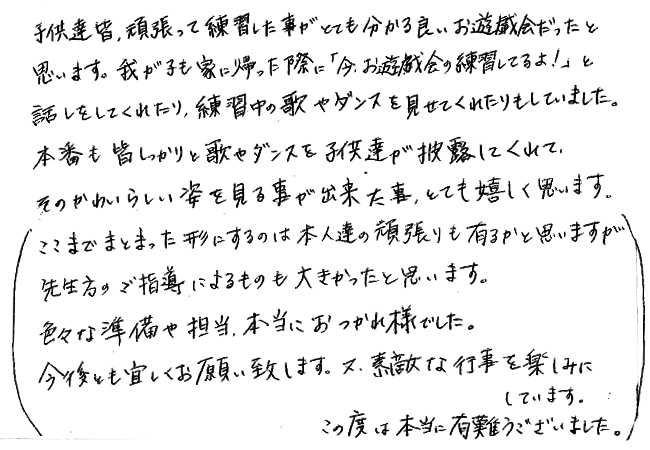 子供達皆、頑張って練習した事がとても分かる良いお遊戯会だったと
思います。我が子も家に帰った際に「今、お遊戯会の練習してるよ!」と
話しをしてくれたり、練習中の歌やダンスを見せてくれたりもしていました。
本番も皆しっかりと歌やダンスを子供達が披露してくれて、
そのかわいらしい姿を見る事が出来た事、とても嬉しく思います。
(ここまでまとまった形にするのは本人達の頑張りも有るかと思いますが
先生方のご指導によるものも大きかったと思います。
色々な準備や担当、本当におつかれ様でした。
今後とも宜しくお願い致します。又、素敵な行事を楽しみに
しています。
この度は本当に有難うございました。)